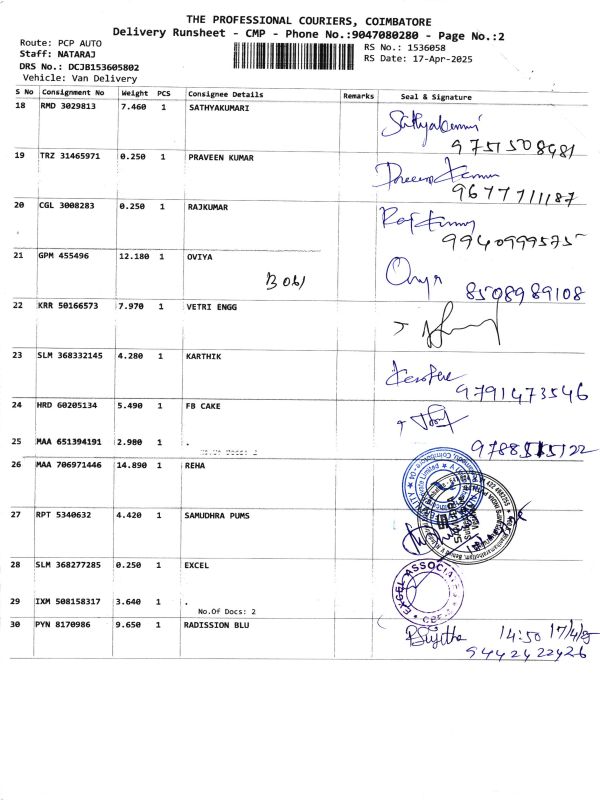 THE PROFESSIONAL COURIERS, COIMBATORE
Delivery Runsheet - CMP - Phone No.:9047080280 - Page No.:2
Route: PCP AUTO
Staff: NATARAJ
DRS No.: DCJB153605802
Vehicle: Van Delivery
RS No.: 1536058
RS Date: 17-Apr-2025
S No Consignment No Weight PCS Consignee Details Remarks Seal & Signature
18 RMD 3029813 7.460 1 SATHYAKUMARI
9751508481
19 TRZ 31465971 0.250 1 PRAVEEN KUMAR
9677711187
20 CGL 3008283 0.250 1 RAJKUMAR
Raj Kumar
9940999575
21 GPM 455496 12.180 1 OVIYA
B 061
8508989108
22 KRR 50166573 7.970 1 VETRI ENGG
23 SLM 368332145 4.280 1 KARTHIK
9791473546
24 HRD 60205134 5.490 1 FB CAKE
25 MAA 651394191 2.980 1 .
No.Of Docs: 2
26 MAA 706971446 14.890 1 REHA
27 RPT 5340632 4.420 1 SAMUDHRA PUMS
28 SLM 368277285 0.250 1 EXCEL
EXCEL ASSOCIATE
29 IXM 508158317 3.640 1 .
No.Of Docs: 2
30 PYN 8170986 9.650 1 RADISSION BLU
14:50 17/4/25
9442422426